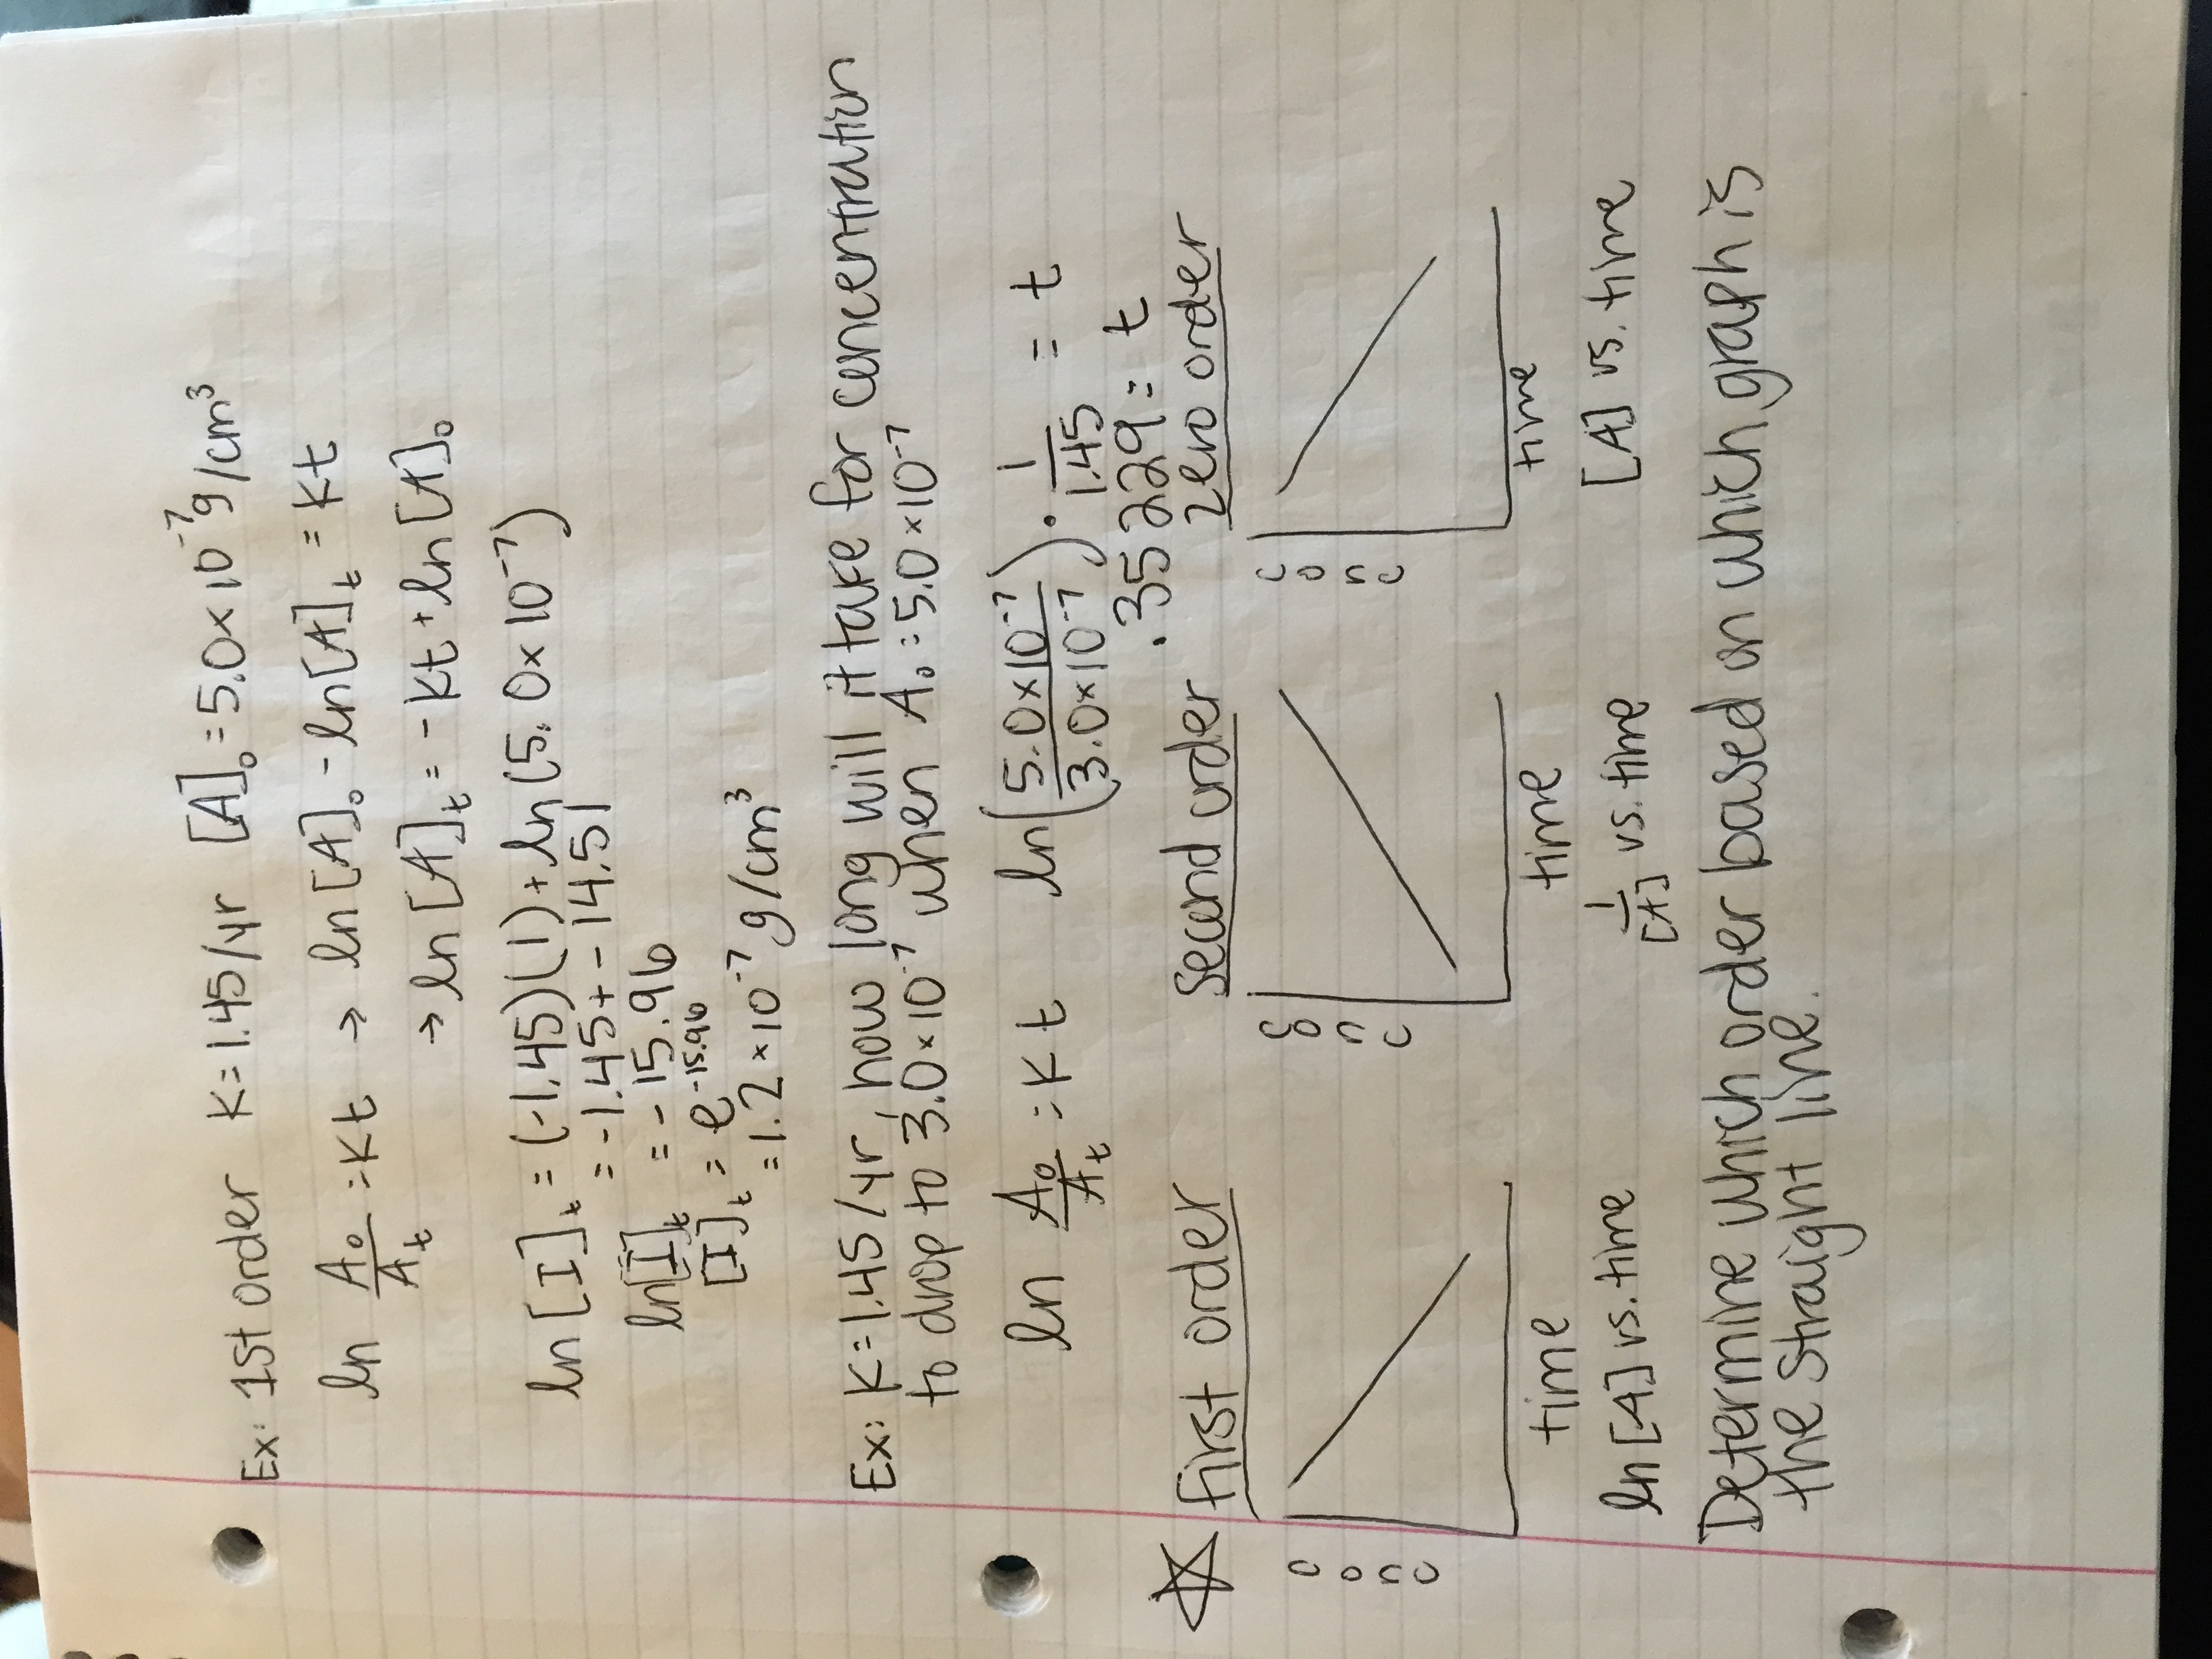 Ex: 1st order K=1.45/yr [A]₀=5.0×10⁻⁷g/cm³
ln A₀/Aₜ = Kt → ln[A]₀-ln[A]ₜ=Kt
→ ln[A]ₜ=-Kt+ln[A]₀
ln[I]ₜ=(-1.45)(1)+ln(5.0×10⁻⁷)
=-1.45+-14.51
ln[I]ₜ=-15.96
[I]ₜ=e⁻¹⁵·⁹⁶
=1.2×10⁻⁷g/cm³
Ex: K=1.45/yr, how long will it take for concentration
to drop to 3.0×10⁻⁷ when A₀=5.0×10⁻⁷
ln A₀/Aₜ = Kt ln(5.0×10⁻⁷/3.0×10⁻⁷)·1/1.45 = t
.35229=t
First order Second order Zero order
conc conc conc
time time time
ln[A] vs. time 1/[A] vs. time [A] vs. time
Determine which order based on which graph is
the straight line.